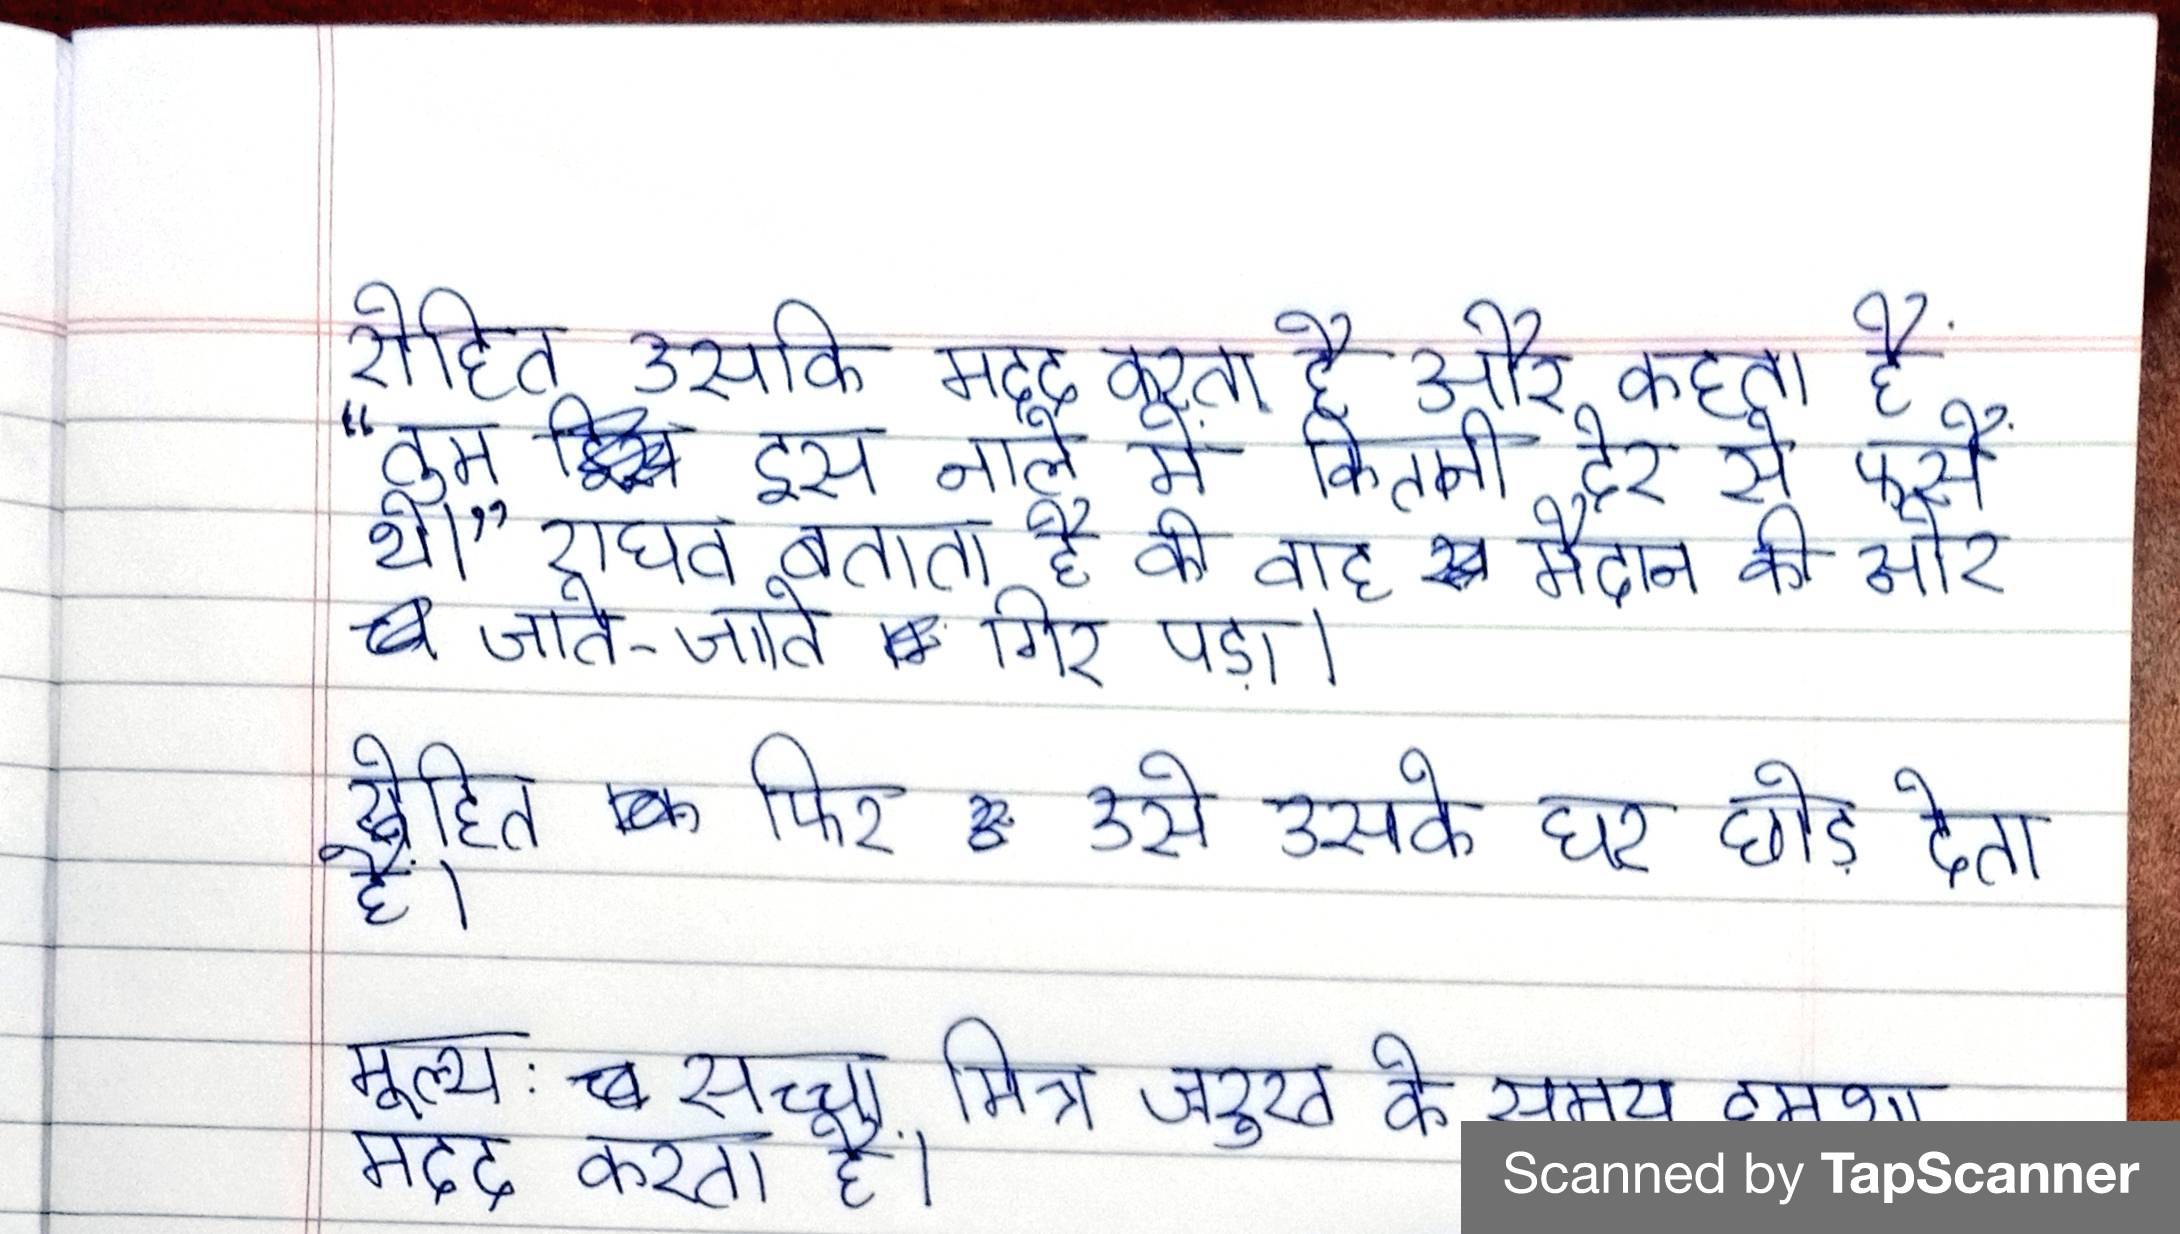 रोहित उसकि मदद करता है और कहता हैं
“तुम इस नाले में कितनी देर से फसें
थे।” राघव बताता है की वाह मैदान की ओर
जाते-जाते गिर पड़ा।
रोहित फिर उसे उसके घर छोड़ देता
हैं।
मूल्य: सच्चा मित्र जरुरत के समय हमेशा
मदद करता हैं।
Scanned by TapScanner